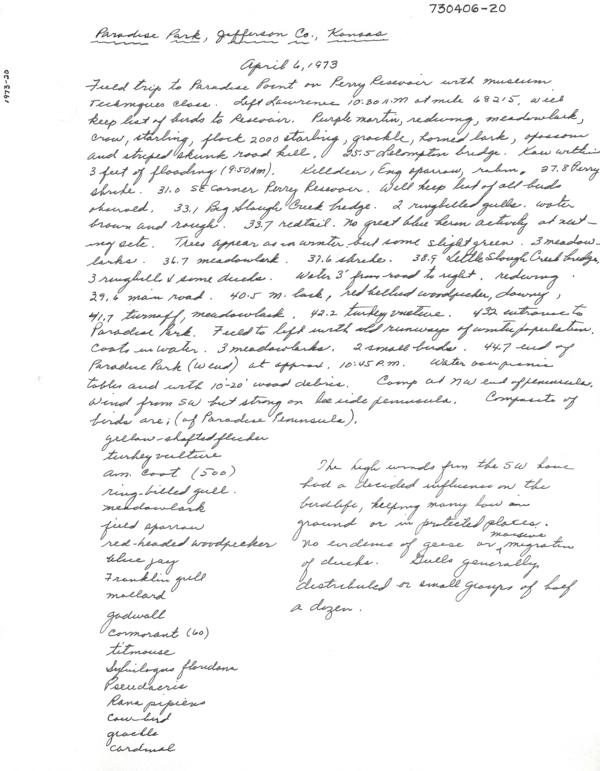 730406-20
1973-20
Paradise Park, Jefferson Co., Kansas
April 6, 1973
Field trip to Paradise Point on Perry Resevoir with museum
Techniques class. Left Lawrence 10:30 A.M at mile 68215, will
keep list of birds to Resevoir. Purple martin, redwing, meadowlark,
crow, starling, flock 2000 starling, grackle, horned lark, opossom
and striped skunk road kill. 25.5 Lecompton bridge. Kaw within
3 feet of flooding (9:50AM). Killdeer, Eng sparrow, robin. 27.8 Perry
shrike. 31.0 SE corner Perry Resevoir. Will keep list of all birds
observed. 33.1 Big Slough Creek bridge. 2 ringbilled gulls. water
brown and rough. 33.7 redtail. No great blue heron activity at nest-
ing site. Trees appear as in winter, but some slight green. 3 meadow-
larks. 36.7 meadowlark. 37.6 shrike. 38.9 Little Slough Creek bridge,
3 ringbills & some ducks. Water 3' from road to right. redwing.
29.6 main road. 40.5 m. lark, red bellied woodpecker, downy,
41.7 turnoff, meadowlark. 42.2 turkey vulture. 43.2 entrance to
Paradise Park. Field to left with old runways of winter population.
Coots in water. 3 meadowlarks. 2 small birds. 44.7 end of
Paradise Park (W end) at approx. 10:45 P.M. Water over picnic
tables and with 10-20' wood debris. Camp at NW end of peninsula.
Wind from SW but strong on lee side peninsula. Composite of
birds are; (of Paradise Peninsula).
yellow-shafted flicker
turkey vulture
am. coot (500)
ring-billed gull.
meadowlark
field sparrow
red-headed woodpecker
blue jay
Franklin gull
mallard
gadwall
cormorant (60)
titmouse
Sylvilagus floridana
Pseudacris
Rana pipiens
cowbird
grackle
cardinal
The high winds from the SW have
had a decided influence on the
birdlife, keeping many low on
ground or in protected places.
No evidence of geese or massive migration
of ducks. Gulls generally
distributed or small groups of half
a dozen.